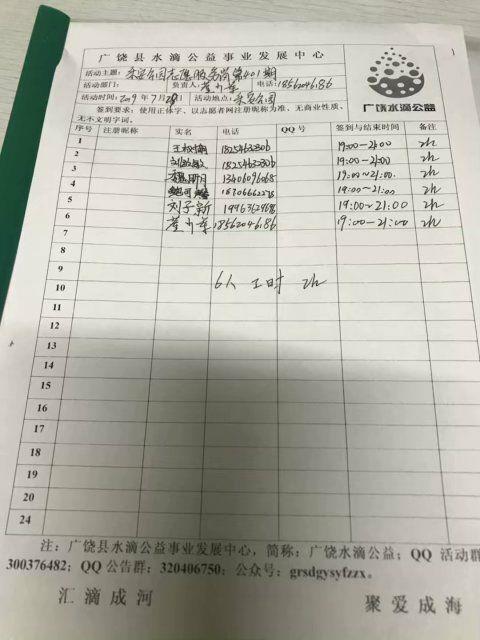 广饶县水滴公益事业发展中心
活动主题： 乐安公园志愿服务岗第401期
活动部门： 负责人： 电话：18562046186
活动时间：2019年7月 日 活动地点：乐安公园
签到要求：使用正体字、以志愿者网注册昵称为准、无商业性质、
无不文明字词。
广饶水滴公益
序号 注册昵称 实名 电话 QQ号 签到与结束时间 备注
1 19:00-21:00 2h
2 19:00~21:00 2h
3 19:00~21:00. 2h
4 19:00~21:00 2h
5 刘子新 19:00~21:00 2h
6 18562046186 19:00-21:00 2h
7
8
9
10 6人 工时 2h
11
12
13
14
15
16
17
18
19
20
24
注：广饶县水滴公益事业发展中心，简称：广饶水滴公益；QQ 活动群
300376482；QQ 公告群：320406750；公众号：grsdgysyfzzx。
汇滴成河 聚爱成海